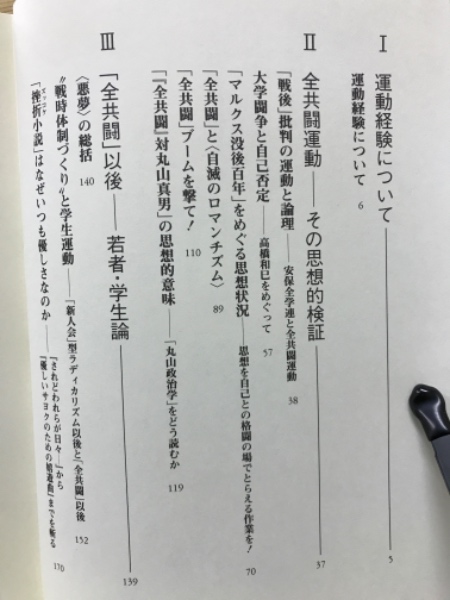 I 運動経験について 5
運動経験について 6
II 全共闘運動——その思想的検証 37
「戦後」批判の運動と論理——安保全学連と全共闘運動 38
大学闘争と自己否定——高橋和巳をめぐって 57
「マルクス没後百年」をめぐる思想状況——思想を自己との格闘の場でとらえる作業を! 70
「全共闘」と〈自滅のロマンチズム〉 89
「全共闘」ブームを撃て! 110
「『全共闘』対丸山真男」の思想的意味——「丸山政治学」をどう読むか 119
III 「全共闘」以後——若者・学生論 139
〈悪夢〉の総括 140
“戦時体制づくり”と学生運動——「新人会」型ラディカリズム以後と「全共闘」以後 152
「挫折小説」はなぜいつも優しさなのか——『されどわれらが日々—』から
『優しいサヨクのための嬉遊曲』までを斬る 170